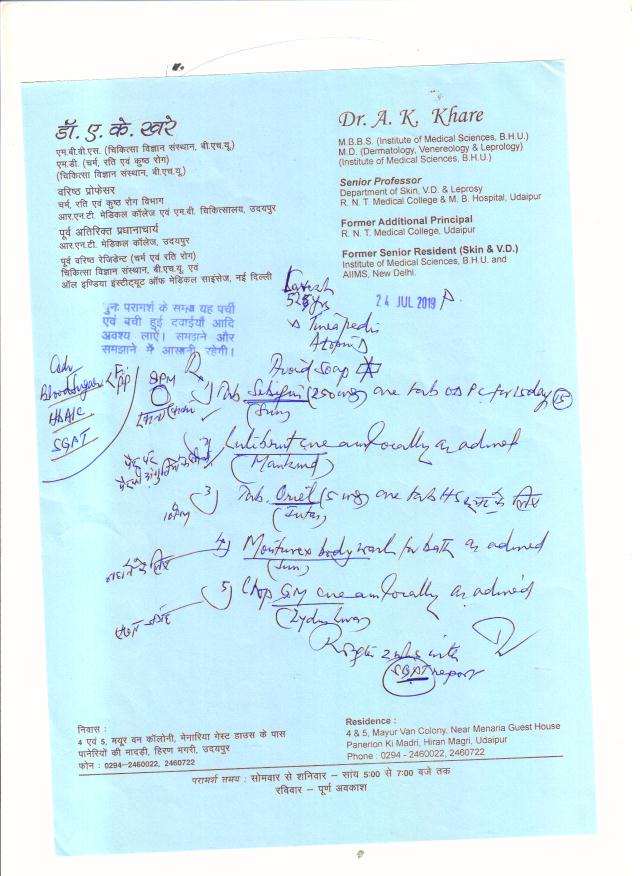 डॉ. ए. के. खरे
एम.बी.बी.एस. (चिकित्सा विज्ञान संस्थान, बी.एच.यू.)
एम.डी. (चर्म, रति एवं कुष्ठ रोग)
(चिकित्सा विज्ञान संस्थान, बी.एच.यू.)
वरिष्ठ प्रोफेसर
चर्म, रति एवं कुष्ठ रोग विभाग
आर.एन.टी. मेडिकल कॉलेज एवं एम.बी. चिकित्सालय, उदयपुर
पूर्व अतिरिक्त प्रधानाचार्य
आर.एन.टी. मेडिकल कॉलेज, उदयपुर
पूर्व वरिष्ठ रेजिडेन्ट (चर्म एवं रति रोग)
चिकित्सा विज्ञान संस्थान, बी.एच.यू. एवं
ऑल इण्डिया इंस्टीट्यूट ऑफ मेडिकल साइंसेज, नई दिल्ली
Dr. A. K. Khare
M.B.B.S. (Institute of Medical Sciences, B.H.U.)
M.D. (Dermatology, Venereology & Leprology)
(Institute of Medical Sciences, B.H.U.)
Senior Professor
Department of Skin, V.D. & Leprosy
R. N. T. Medical College & M. B. Hospital, Udaipur
Former Additional Principal
R. N. T. Medical College, Udaipur
Former Senior Resident (Skin & V.D.)
Institute of Medical Sciences, B.H.U. and
AIIMS, New Delhi.
24 JUL 2019
पुनः परामर्श के समय यह पर्ची
एवं बची हुई दवाईयाँ आदि
अवश्य लाएं। समझने और
समझाने में आसानी रहेगी।
Tinea pedis
Avoid Soap
Blood Sugar F PP
HbA1C
SGPT
8PM
1) Tab. (250mg) one tab OD PC for 15 days 15
(Sun)
2) locally as advised
(Mankind)
3) Tab. (5mg) one tab HS
(Intas)
10PM
4) Moisturex body wash for bath as advised
(Sun)
नहाने के लिए
5) locally as advised
2 wks with
SGPT report
निवास :
4 एवं 5, मयूर वन कॉलोनी, मेनारिया गेस्ट हाउस के पास
पानेरियों की मादड़ी, हिरण मगरी, उदयपुर
फोन : 0294-2460022, 2460722
Residence :
4 & 5, Mayur Van Colony, Near Menaria Guest House
Panerion Ki Madri, Hiran Magri, Udaipur
Phone : 0294 - 2460022, 2460722
परामर्श समय : सोमवार से शनिवार – सांय 5:00 से 7:00 बजे तक
रविवार – पूर्ण अवकाश